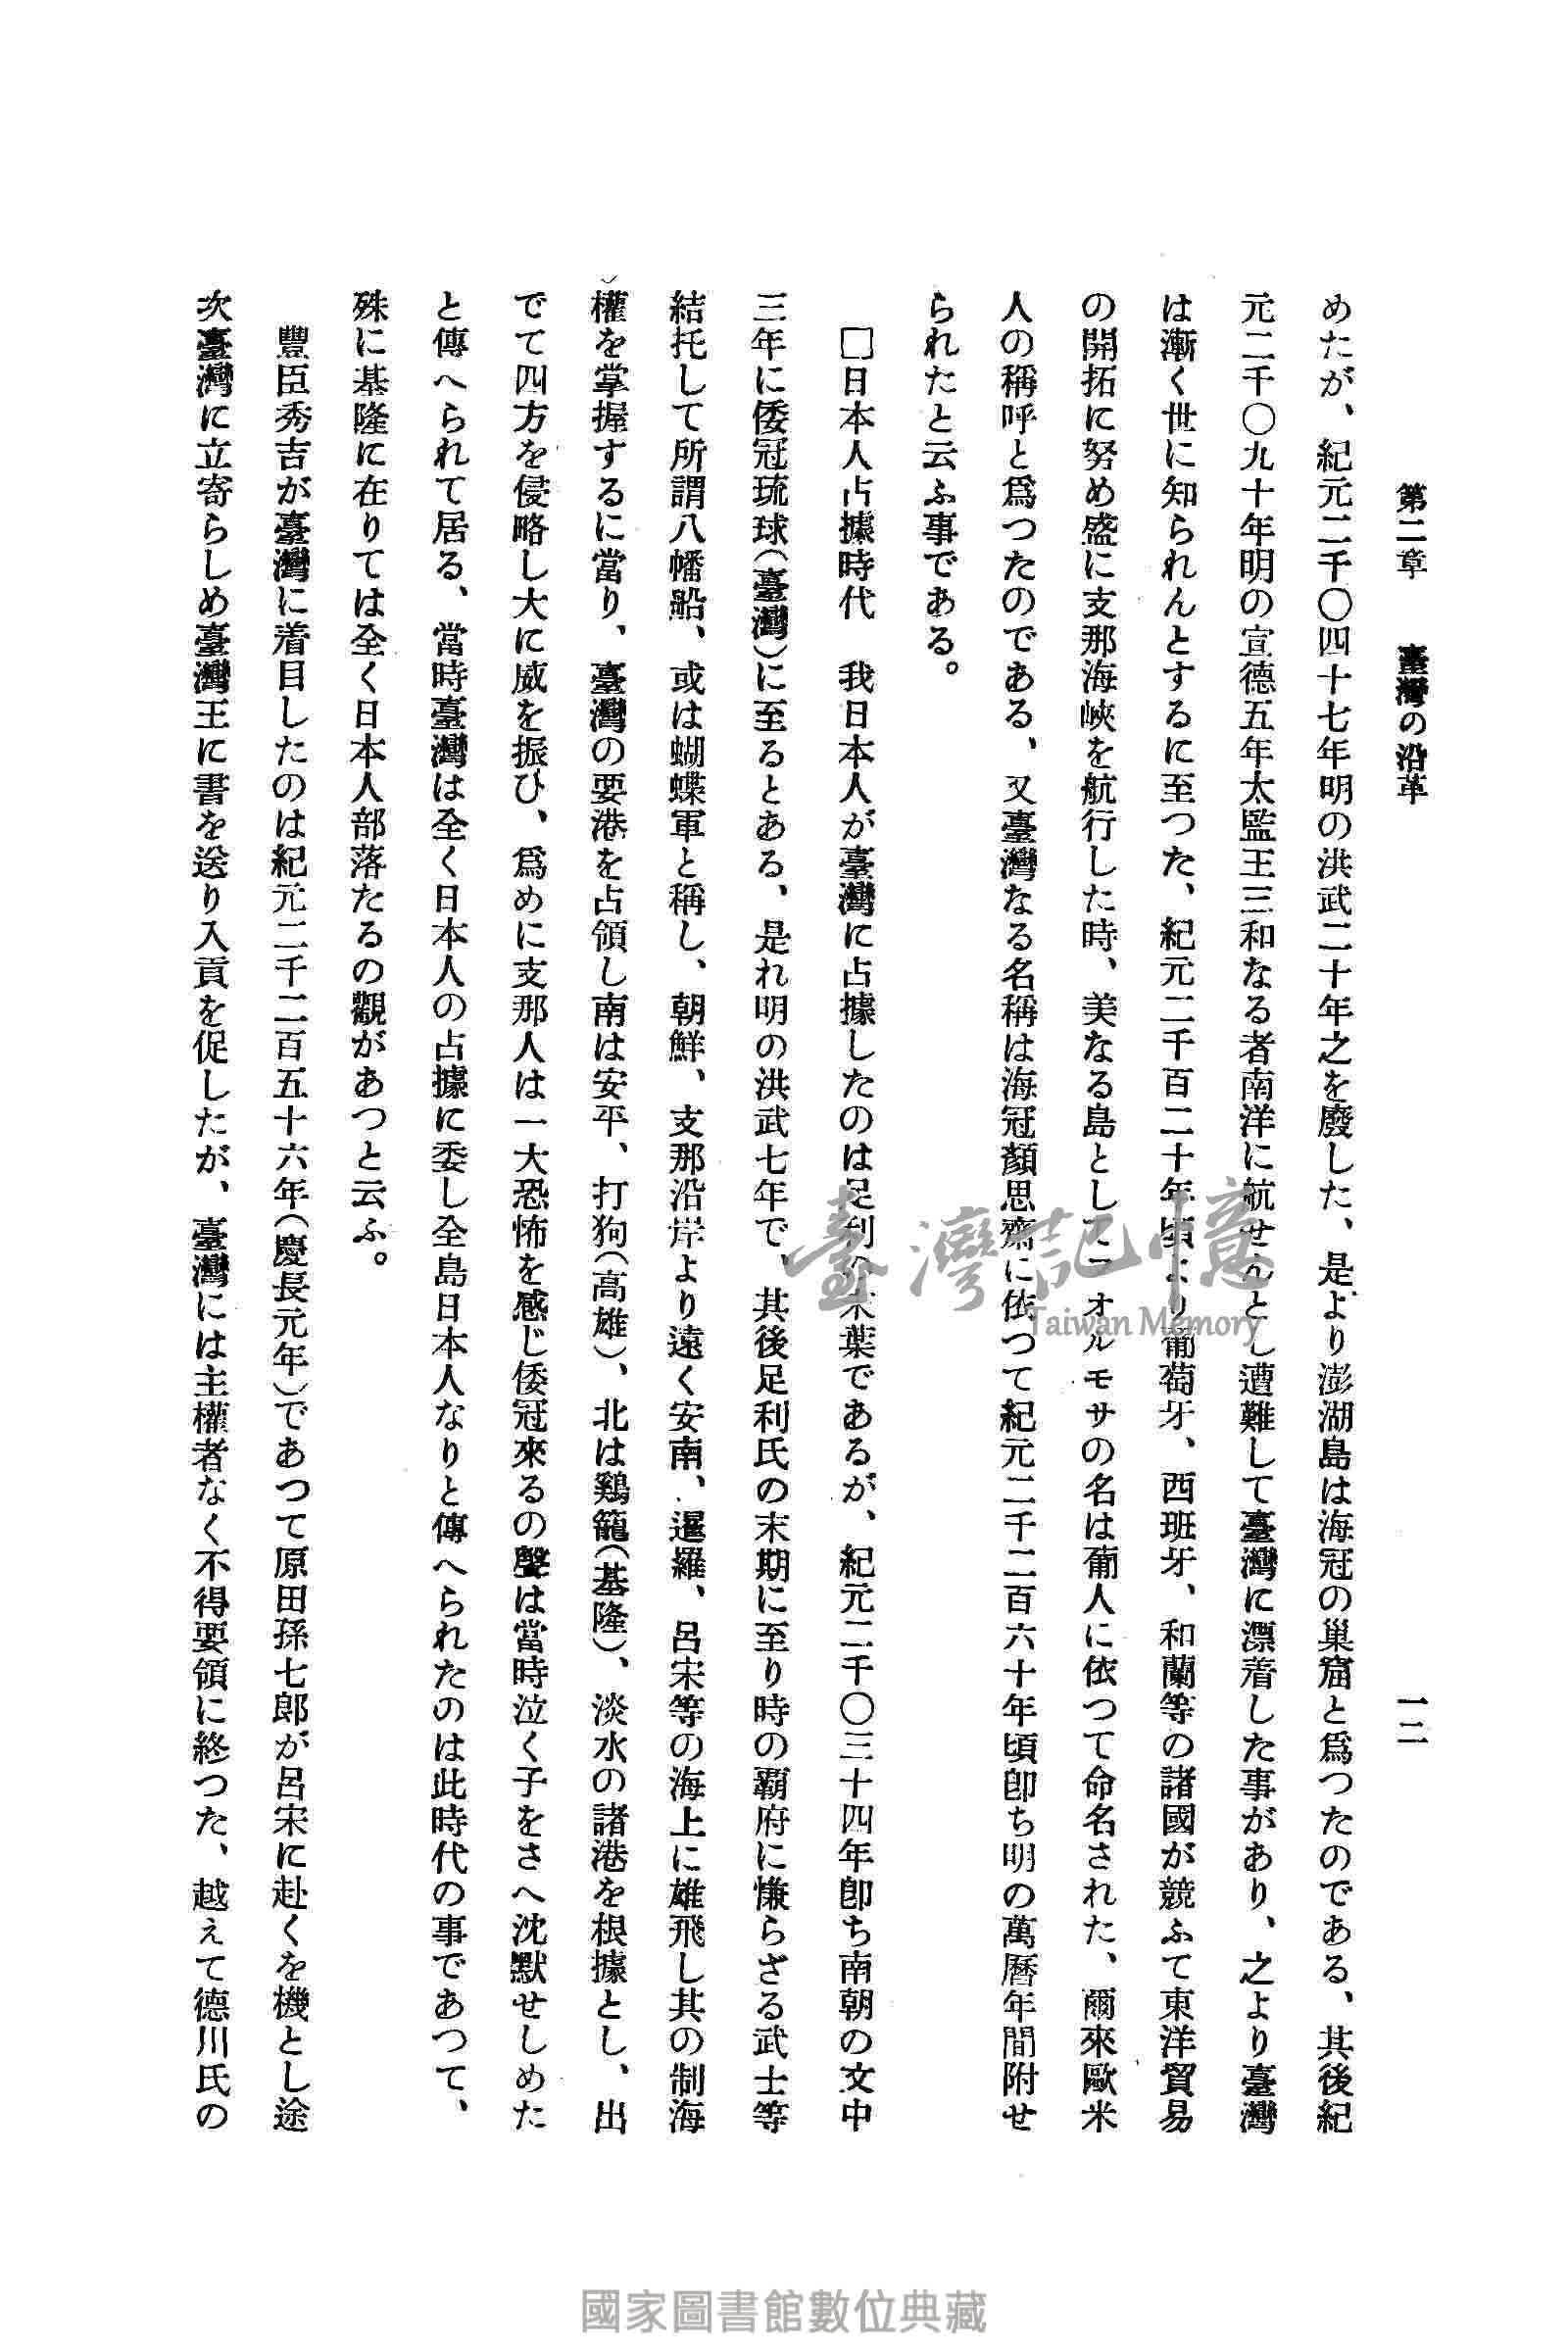 第二章　臺灣の沿革　一二
めたが、紀元二千〇四十七年明の洪武二十年之を廢した、是より澎湖島は海冠の巢窟と爲つたのである、其後紀
元二千〇九十年明の宣德五年太監王三和なる者南洋に航せんとし遭難して臺灣に漂着した事があり、之より臺灣
は漸く世に知られんとするに至つた、紀元二千百二十年頃より葡萄牙、西班牙、和蘭等の諸國が競ふて東洋貿易
の開拓に努め盛に支那海峽を航行した時、美なる島としてフオルモサの名は葡人に依つて命名された、爾來歐米
人の稱呼と爲つたのである、又臺灣なる名稱は海冠顏思齋に依つて紀元二千二百六十年頃卽ち明の萬曆年間附せ
られたと云ふ事である。
□日本人占據時代　我日本人が臺灣に占據したのは足利の末葉であるが、紀元二千〇三十四年卽ち南朝の文中
三年に倭冠琉球（臺灣）に至るとある、是れ明の洪武七年で、其後足利氏の末期に至り時の覇府に慊らざる武士等
結托して所謂八幡船、或は蝴蝶軍と稱し、朝鮮、支那沿岸より遠く安南、暹羅、呂宋等の海上に雄飛し其の制海
權を掌握するに當り、臺灣の要港を占領し南は安平、打狗（高雄）、北は鷄籠（基隆）、淡水の諸港を根據とし、出
でて四方を侵略し大に威を振ひ、爲めに支那人は一大恐怖を感じ倭冠來るの聲は當時泣く子をさへ沈默せしめた
と傳へられて居る、當時臺灣は全く日本人の占據に委し全島日本人なりと傳へられたのは此時代の事であつて、
殊に基隆に在りては全く日本人部落たるの觀があつと云ふ。
豐臣秀吉が臺灣に着目したのは紀元二千二百五十六年（慶長元年）であつて原田孫七郎が呂宋に赴くを機とし途
次臺灣に立寄らしめ臺灣王に書を送り入貢を促したが、臺灣には主權者なく不得要領に終つた、越えて德川氏の
臺灣記憶
Taiwan Memory
國家圖書館數位典藏